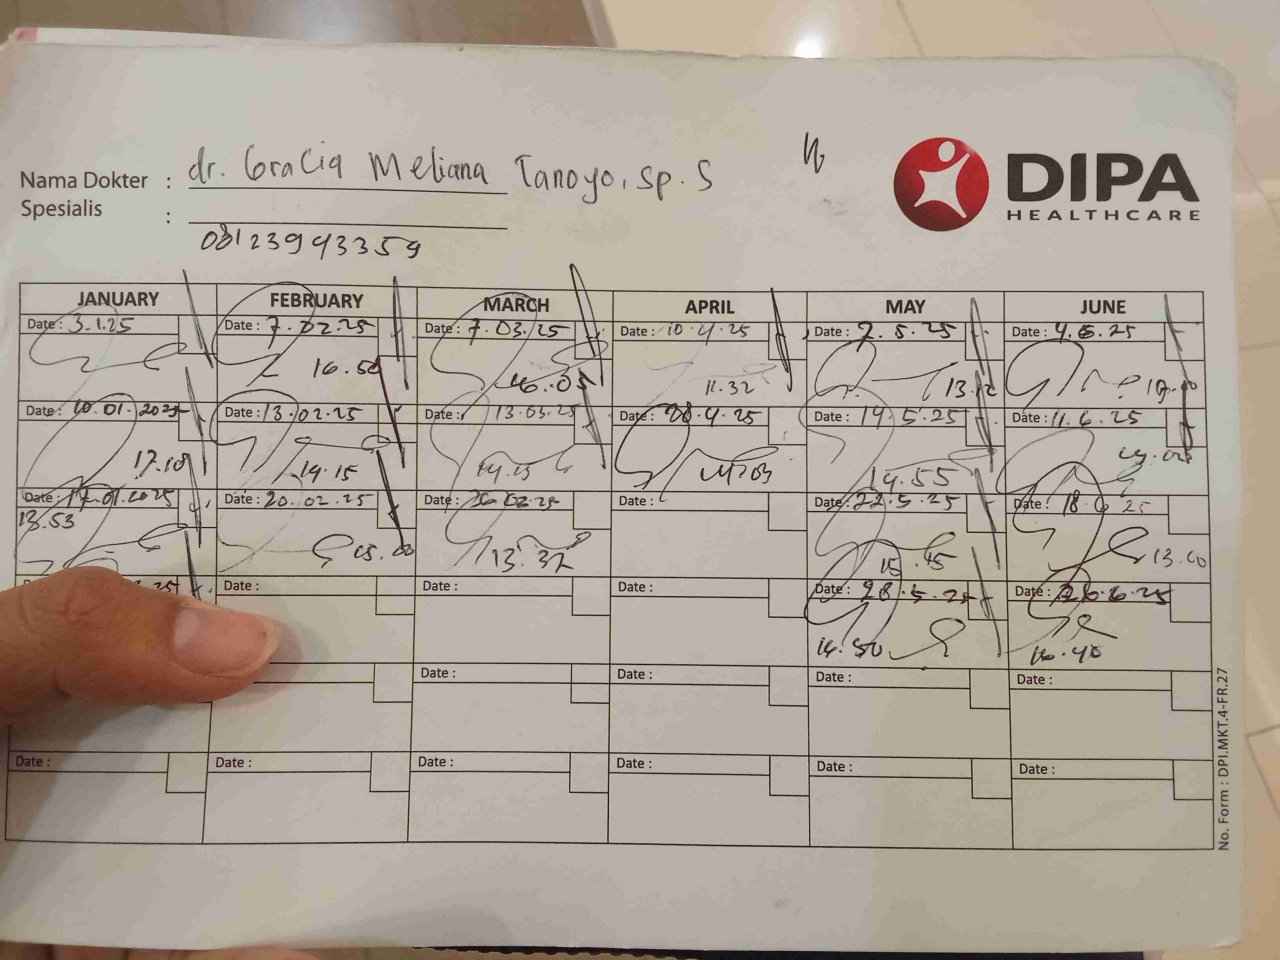 dr. Gracia Meliana Tanoyo, Sp. S
Nama Dokter :
Spesialis :
08123943359
DIPA
HEALTHCARE
JANUARY FEBRUARY MARCH APRIL MAY JUNE
Date : 3.1.25 Date : 7.02.25 Date : 7.03.25 Date : 10.4.25 Date : 2.5.25 Date : 4.6.25
16.50 16.05 11.32 13.12
Date : 10.01.2025 Date : 13.02.25 Date : 13.03.25 Date : 28.4.25 Date : 14.5.25 Date : 11.6.25
17.18 14.15 14.15 14.55
Date : 17.01.2025 Date : 20.02.25 Date : Date : Date : 22.5.25 Date : 18.6.25
13.53 15.00 13.37 15.45 13.00
Date : Date : Date : Date : 28.5.25 Date : 26.6.25
14.50 16.40
Date : Date : Date : Date :
Date : Date : Date : Date : Date : Date :
No. Form : DPI.MKT.4-FR.27